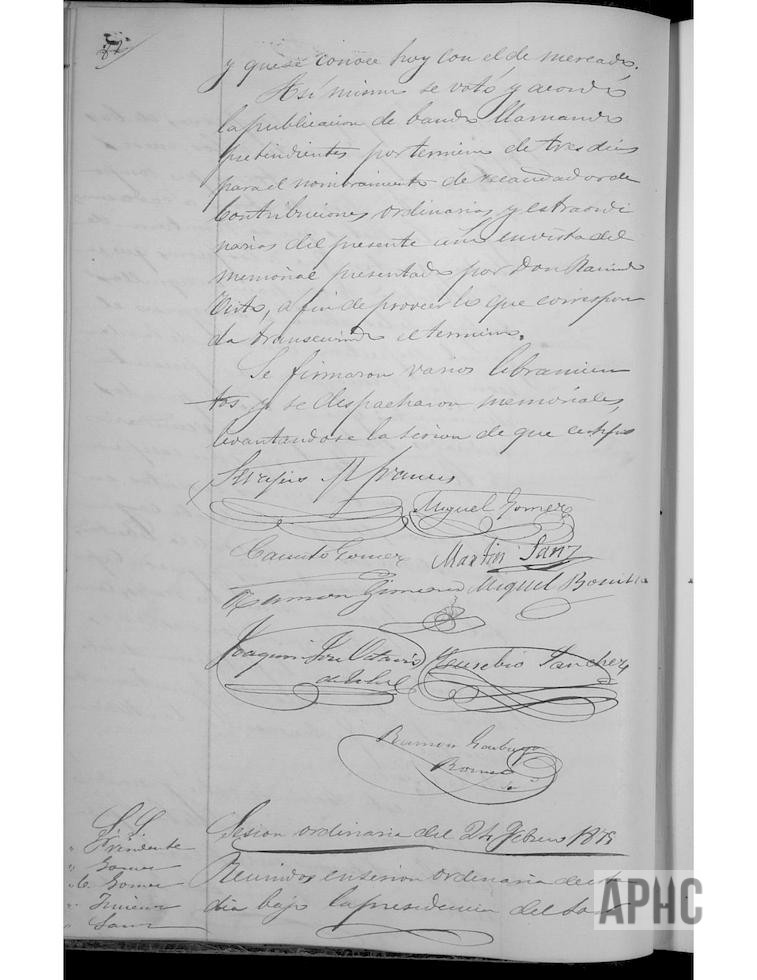 y que se conoce hoy con el de mercado.
Asi mismo se votó y acordó
la publicacion de bando llamando
pretendientes por termino de tres dias
para el nombramiento de recaudador de
Contribuciones ordinarias y estraordi
narias del presente año en vista del
memorial presentado por Don Ramundo
a fin de proveer lo que correspon
da transcurrido el termino.
Se firmaron varios libramien
tos y se despacharon memoriales,
levantandose la sesion de que certifico
Serapio
Miguel Gomez
Canuto Gomez
Martin Sanz
Ramon Gimeno
Miguel Bonilla
Joaquin Jose
Eusebio Sanchez
Ramon
Romeo
S. S.
Presidente
Gomez
C. Gomez
Jimeno
Sanz
Sesion ordinaria del 24 Febrero 1875
Reunidos en sesion ordinaria de este
dia bajo la presidencia del
APHC